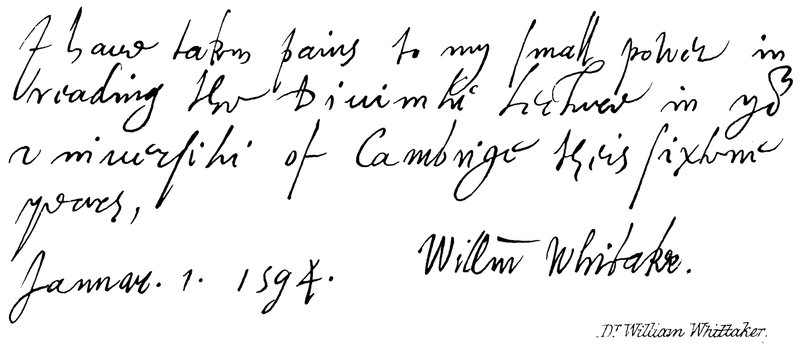 I have taken pains to my small power in
reading the Diuinitie lecture in yᵉ
vniuersiti of Cambrige theis sixtene
years,
Januar. 1. 1594.
Willm̄ Whitaker.
Dʳ William Whittaker.